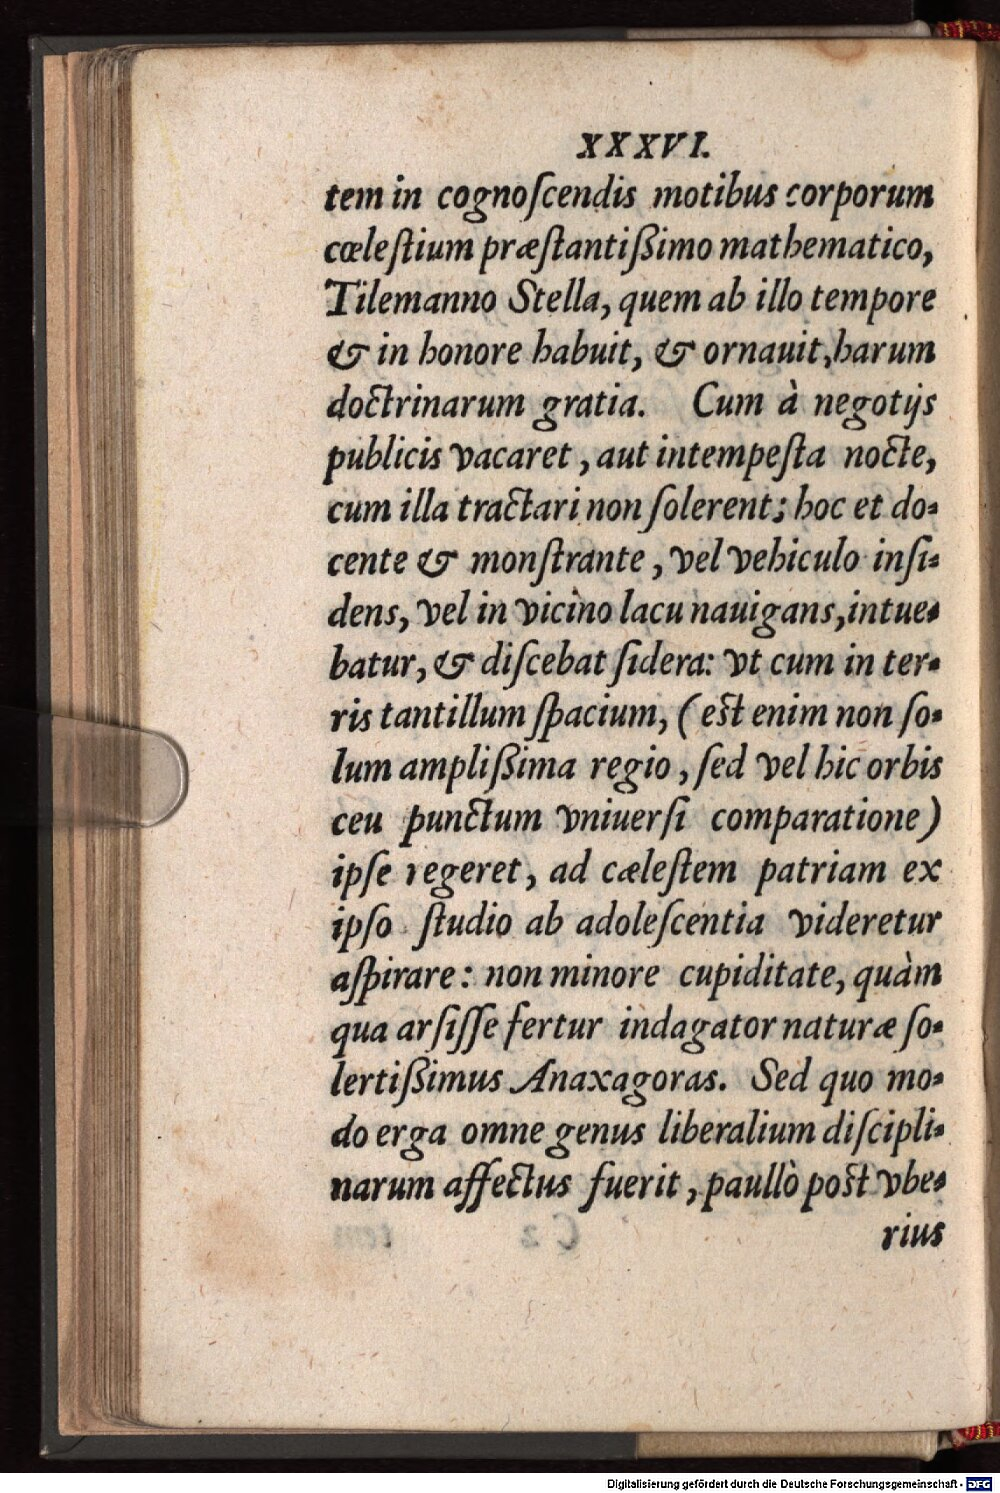 XXXVI.
tem in cognoſcendis motibus corporum
cœleſtium præſtantiſsimo mathematico,
Tilemanno Stella, quem ab illo tempore
& in honore habuit, & ornauit, harum
doctrinarum gratia. Cum à negotijs
publicis vacaret, aut intempeſta nocte,
cum illa tractari non ſolerent; hoc et do-
cente & monſtrante, vel vehiculo inſi-
dens, vel in vicino lacu nauigans, intue-
batur, & diſcebat ſidera: vt cum in ter-
ris tantillum ſpacium, (est enim non ſo-
lum ampliſsima regio, ſed vel hic orbis
ceu punctum vniuerſi comparatione)
ipſe regeret, ad cæleſtem patriam ex
ipſo ſtudio ab adoleſcentia videretur
aſpirare: non minore cupiditate, quàm
qua arſiſſe fertur indagator naturæ ſo-
lertiſsimus Anaxagoras. Sed quo mo-
do erga omne genus liberalium diſcipli-
narum affectus fuerit, paullò post vbe-
rius
Digitalisierung gefördert durch die Deutsche Forschungsgemeinschaft - DFG